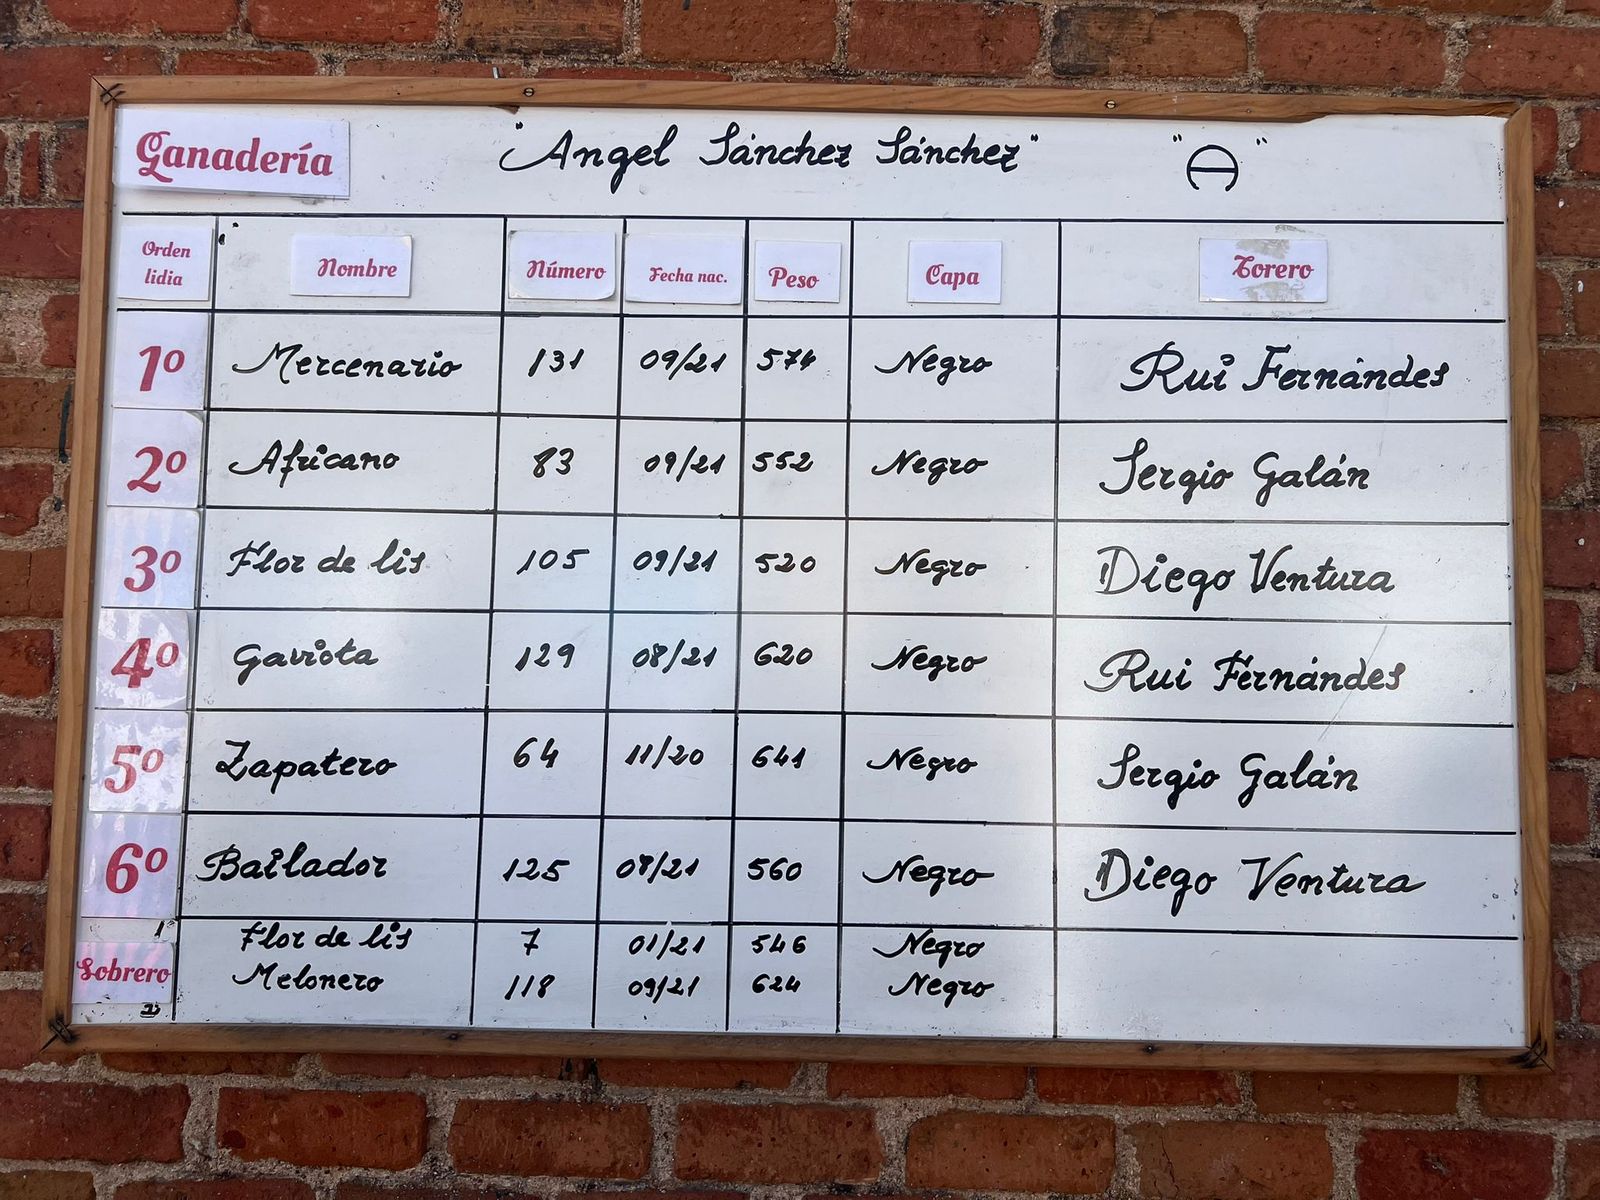 Ganadería "Angel Sánchez Sánchez" "A"
Orden lidia Nombre Número Fecha nac. Peso Capa Torero
1º Mercenario 131 09/21 574 Negro Rui Fernándes
2º Africano 83 09/21 552 Negro Sergio Galán
3º Flor de lis 105 09/21 520 Negro Diego Ventura
4º Gaviota 129 08/21 620 Negro Rui Fernándes
5º Zapatero 64 11/20 641 Negro Sergio Galán
6º Bailador 125 08/21 560 Negro Diego Ventura
1º Flor de lis 7 01/21 546 Negro
Sobrero
2º Melonero 118 09/21 624 Negro